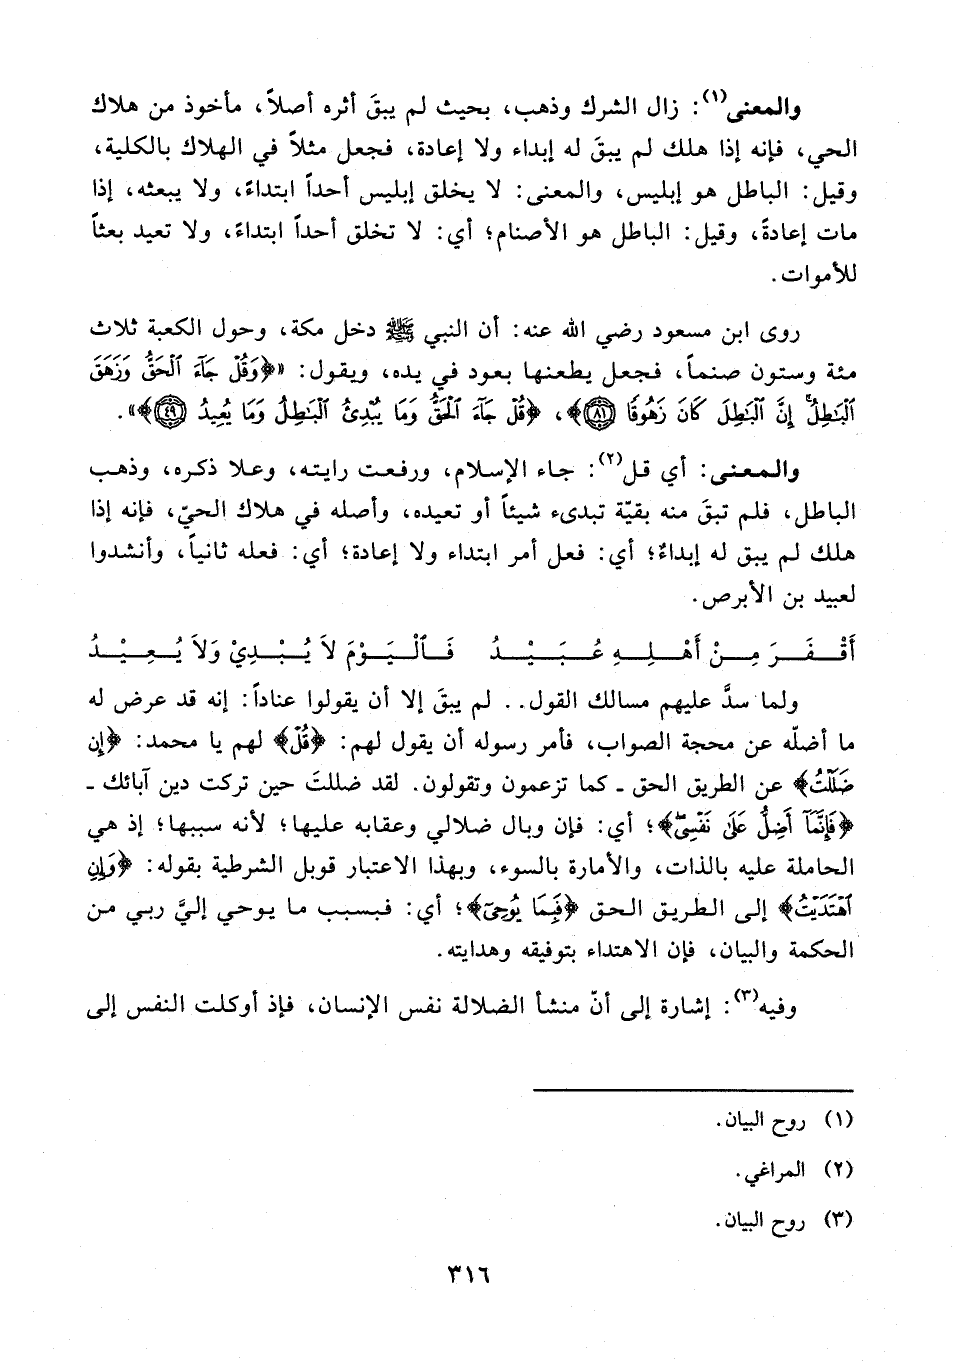 والمعنى(١): زال الشرك وذهب، بحيث لم يبقَ أثره أصلاً، مأخوذ من هلاك
الحي، فإنه إذا هلك لم يبقَ له إبداء ولا إعادة، فجعل مثلاً في الهلاك بالكلية،
وقيل: الباطل هو إبليس، والمعنى: لا يخلق إبليس أحداً ابتداءً، ولا يبعثه، إذا
مات إعادةً، وقيل: الباطل هو الأصنام؛ أي: لا تخلق أحداً ابتداءً، ولا تعيد بعثاً
للأموات.
روى ابن مسعود رضي الله عنه: أن النبي ﷺ دخل مكة، وحول الكعبة ثلاث
مئة وستون صنماً، فجعل يطعنها بعود في يده، ويقول: «﴿وَقُلْ جَآءَ ٱلْحَقُّ وَزَهَقَ
ٱلْبَٰطِلُ ۚ إِنَّ ٱلْبَٰطِلَ كَانَ زَهُوقًا ﴿٨١﴾﴾، ﴿قُلْ جَآءَ ٱلْحَقُّ وَمَا يُبْدِئُ ٱلْبَٰطِلُ وَمَا يُعِيدُ ﴿٤٩﴾﴾».
والمعنى: أي قل(٢): جاء الإسلام، ورفعت رايته، وعلا ذكره، وذهب
الباطل، فلم تبقَ منه بقيّة تبدىء شيئاً أو تعيده، وأصله في هلاك الحيّ، فإنه إذا
هلك لم يبق له إبداءٌ؛ أي: فعل أمر ابتداء ولا إعادة؛ أي: فعله ثانياً، وأنشدوا
لعبيد بن الأبرص.
أَقْفَرَ مِنْ أَهْلِهِ عُبَيْدُ فَٱلْيَوْمَ لاَ يُبْدِيْ وَلاَ يُعِيْدُ
ولما سدَّ عليهم مسالك القول.. لم يبقَ إلا أن يقولوا عناداً: إنه قد عرض له
ما أضلّه عن محجة الصواب، فأمر رسوله أن يقول لهم: ﴿قُلْ﴾ لهم يا محمد: ﴿إِن
ضَلَلْتُ﴾ عن الطريق الحق ـ كما تزعمون وتقولون. لقد ضللتَ حين تركت دين آبائك ـ
﴿فَإِنَّمَآ أَضِلُّ عَلَىٰ نَفْسِى﴾؛ أي: فإن وبال ضلالي وعقابه عليها؛ لأنه سببها؛ إذ هي
الحاملة عليه بالذات، والأمارة بالسوء، وبهذا الاعتبار قوبل الشرطية بقوله: ﴿وَإِنِ
ٱهْتَدَيْتُ﴾ إلى الطريق الحق ﴿فَبِمَا يُوحِىٓ﴾؛ أي: فبسبب ما يوحي إليَّ ربي من
الحكمة والبيان، فإن الاهتداء بتوفيقه وهدايته.
وفيه(٣): إشارة إلى أنّ منشأ الضلالة نفس الإنسان، فإذ أوكلت النفس إلى
(١) روح البيان.
(٢) المراغي.
(٣) روح البيان.
٣١٦